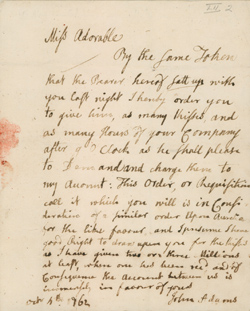 Miss Adorable
By the same Token
that the Bearer hereof satt up with
you last night I hereby order you
to give him, as many Kisses, and
as many Hours of your Company
after 9 O'Clock as he shall please
to Demand and charge them to
my Account: This Order, or Requisition
call it which you will is in Consi-
deration of a similar order
for the like favour, and I presume I have
good Right to draw upon you for the Kisses
as I have given two or three Millions
at least, when one has been recd, and of
Consequence the Account between us is
immensely in favour of yours
John Adams
Octr 4th 1762